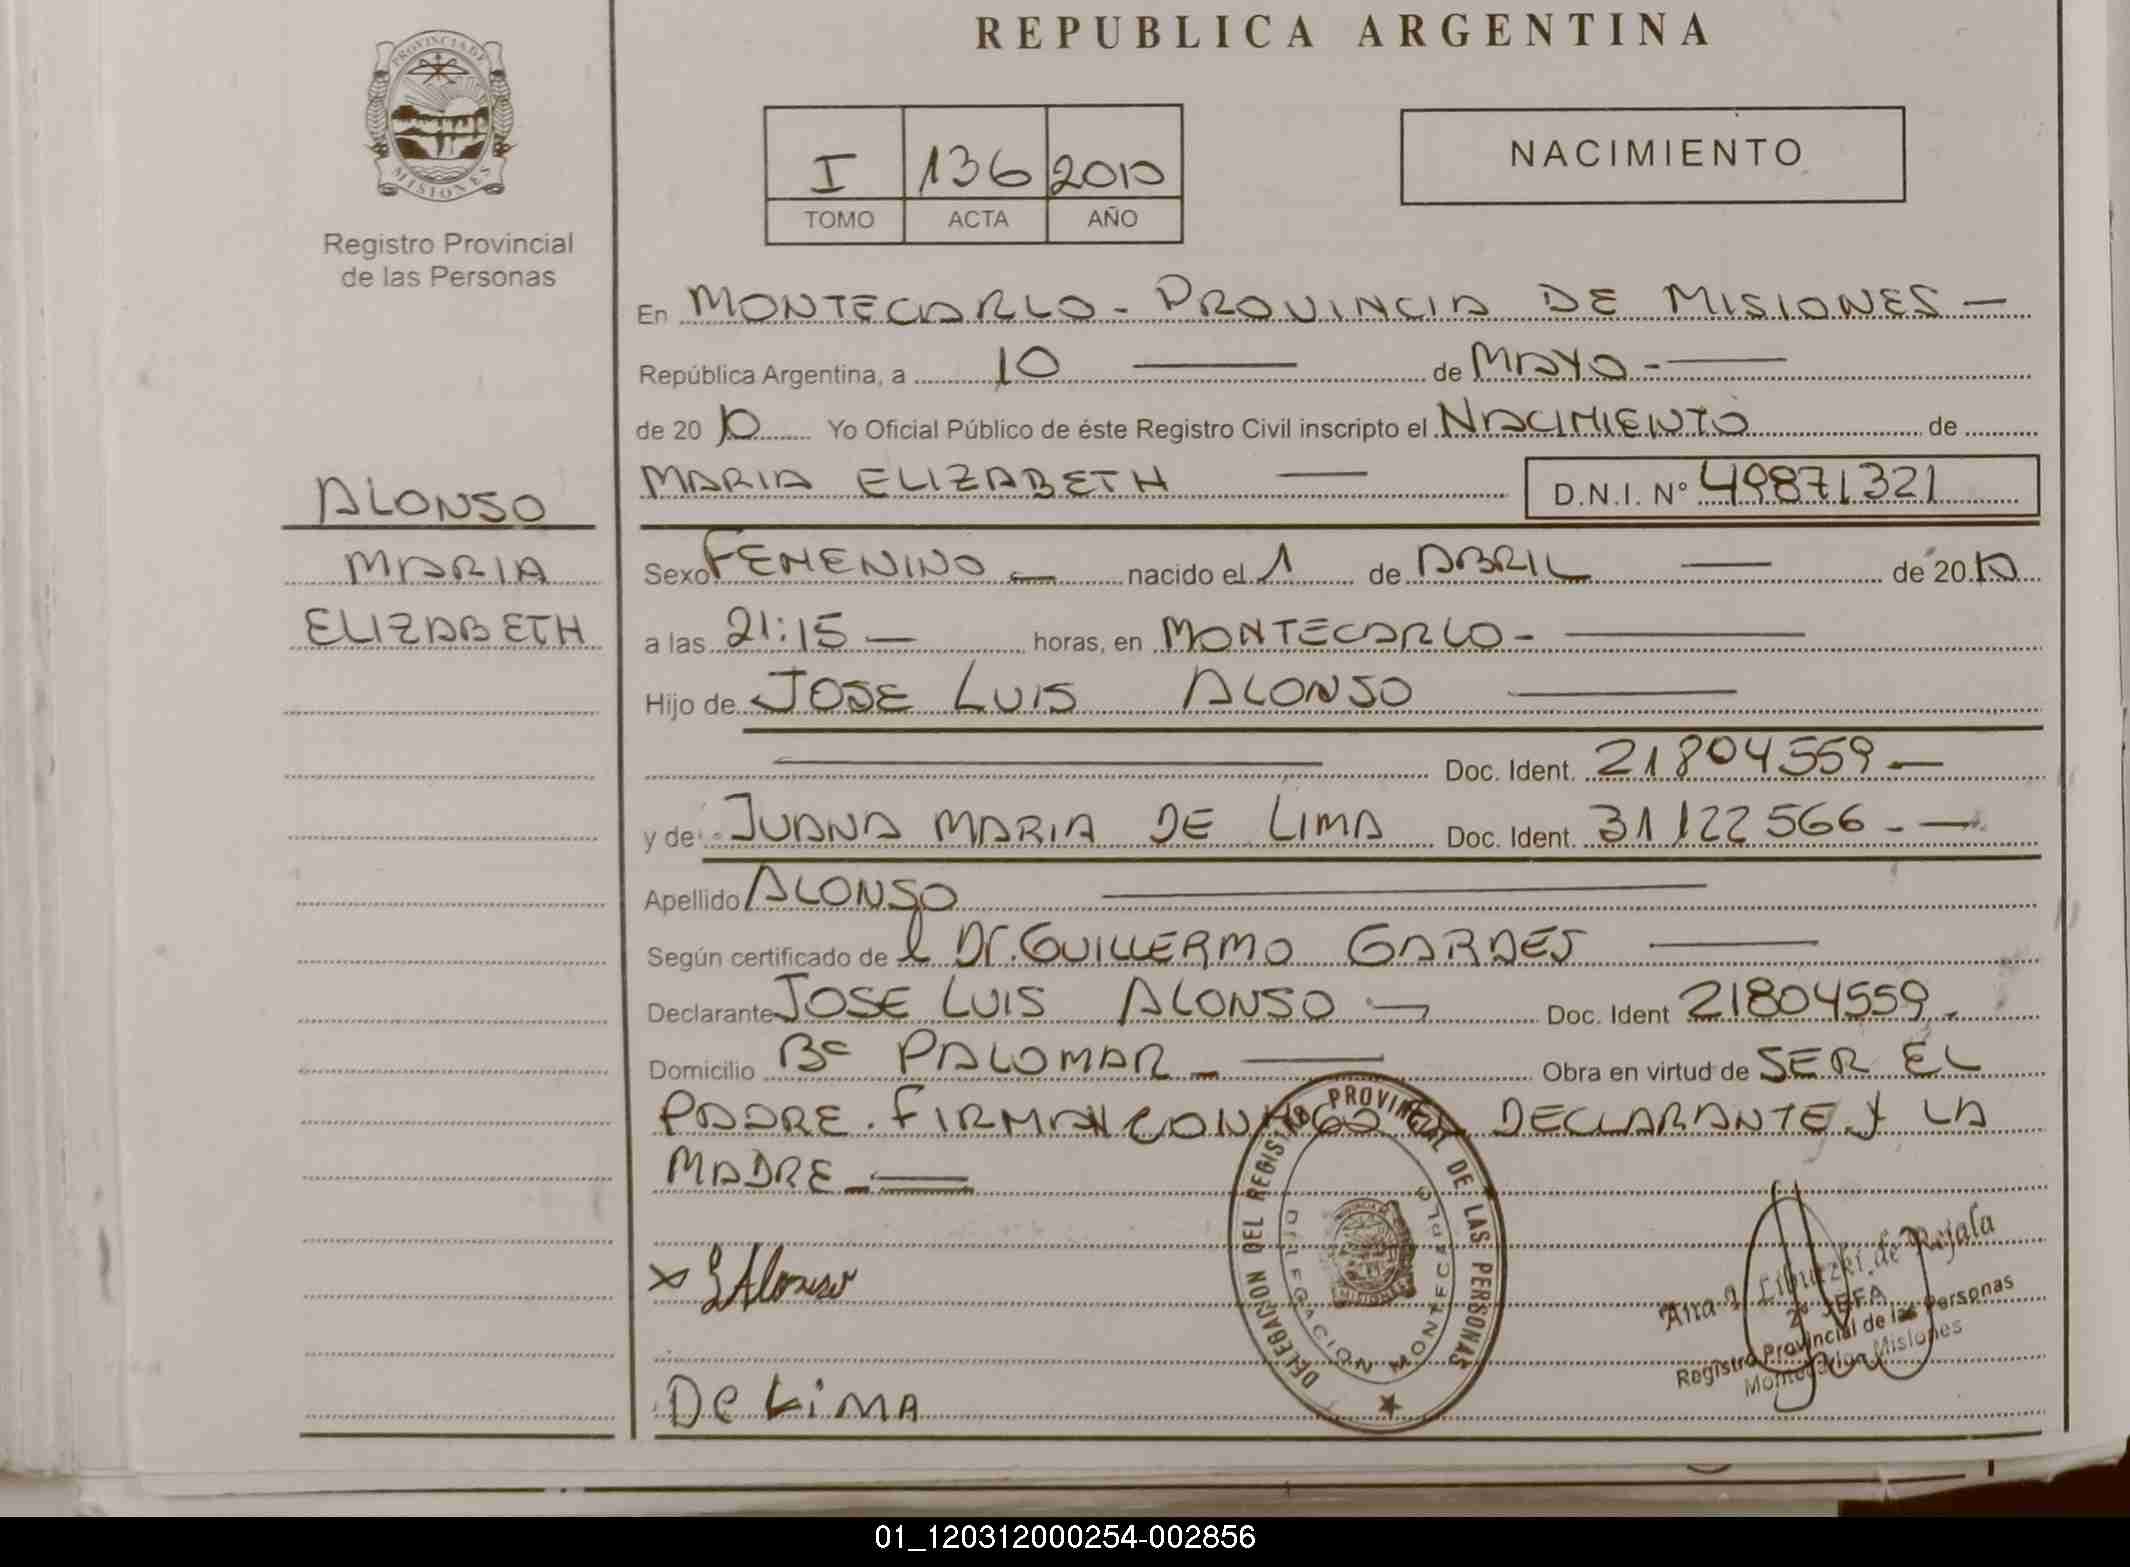 REPUBLICA ARGENTINA
PROVINCIA DE
MISIONES
Registro Provincial
de las Personas
I 136 2010
TOMO ACTA AÑO
NACIMIENTO
En MONTECARLO - PROVINCIA DE MISIONES -
República Argentina, a 10 de MAYO -
de 20 10 Yo Oficial Público de éste Registro Civil inscripto el NACIMIENTO de
MARIA ELIZABETH D.N.I. Nº 49871321
ALONSO
MARIA
ELIZABETH
Sexo FEMENINO - nacido el 1 de ABRIL de 20 10
a las 21:15 - horas, en MONTECARLO -
Hijo de JOSE LUIS ALONSO
Doc. Ident. 21804559 -
y de JUANA MARIA DE LIMA Doc. Ident. 31122566 - -
Apellido ALONSO
Según certificado de l Dr. GUILLERMO GARDES
Declarante JOSE LUIS ALONSO - Doc. Ident 21804559.
Domicilio Bº PALOMAR - Obra en virtud de SER EL
PADRE. FIRMAN CONMIGO EL DECLARANTE Y LA
MADRE -
DELEGACION DEL REGISTRO PROVINCIAL DE LAS PERSONAS
DELEGACION MONTECARLO
MISIONES
x Alonso
de Rejala
2º JEFA
Registro Provincial de las Personas
Montecarlo Misiones
De Lima
01_120312000254-002856